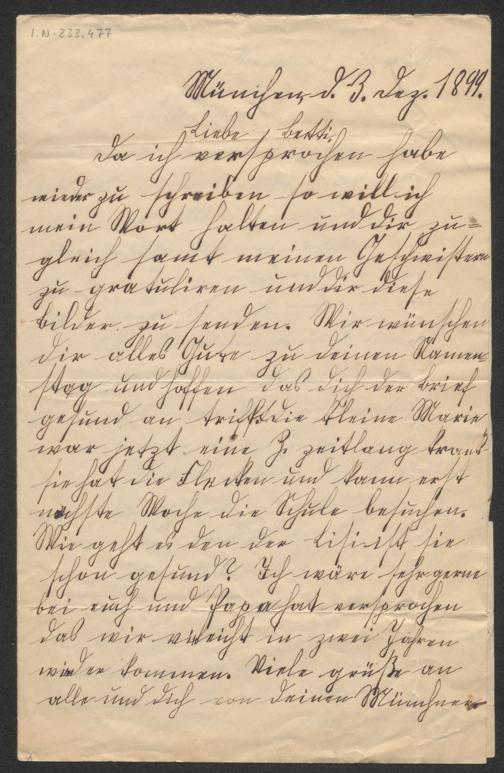 I.N-233.477
München, d. 3. Dez. 1899.
Liebe Betti.
Da ich versprochen habe
wieder zu schreiben so will ich
mein Wort halten und dir zu=
gleich samt meinen Geschwistern
zu gratuliren und dir diese
bilder zu senden. Wir wünschen
dir alles Gute zu deinen Namen
stag und hoffen das dich der brief
gesund an trifft die kleine Marie
war jetzt eine zeitlang krank
sie hat die Flecken und kann erst
nächste Woche die Schule besuchen.
Wie geht es den der Lisi ist sie
schon gesund? Ich wäre sehr gerne
bei euch und Papa hat versprochen
das wir vieleicht in zwei Jahren
wieder kommen. Viele grüße an
alle und dich von deinen Münchner